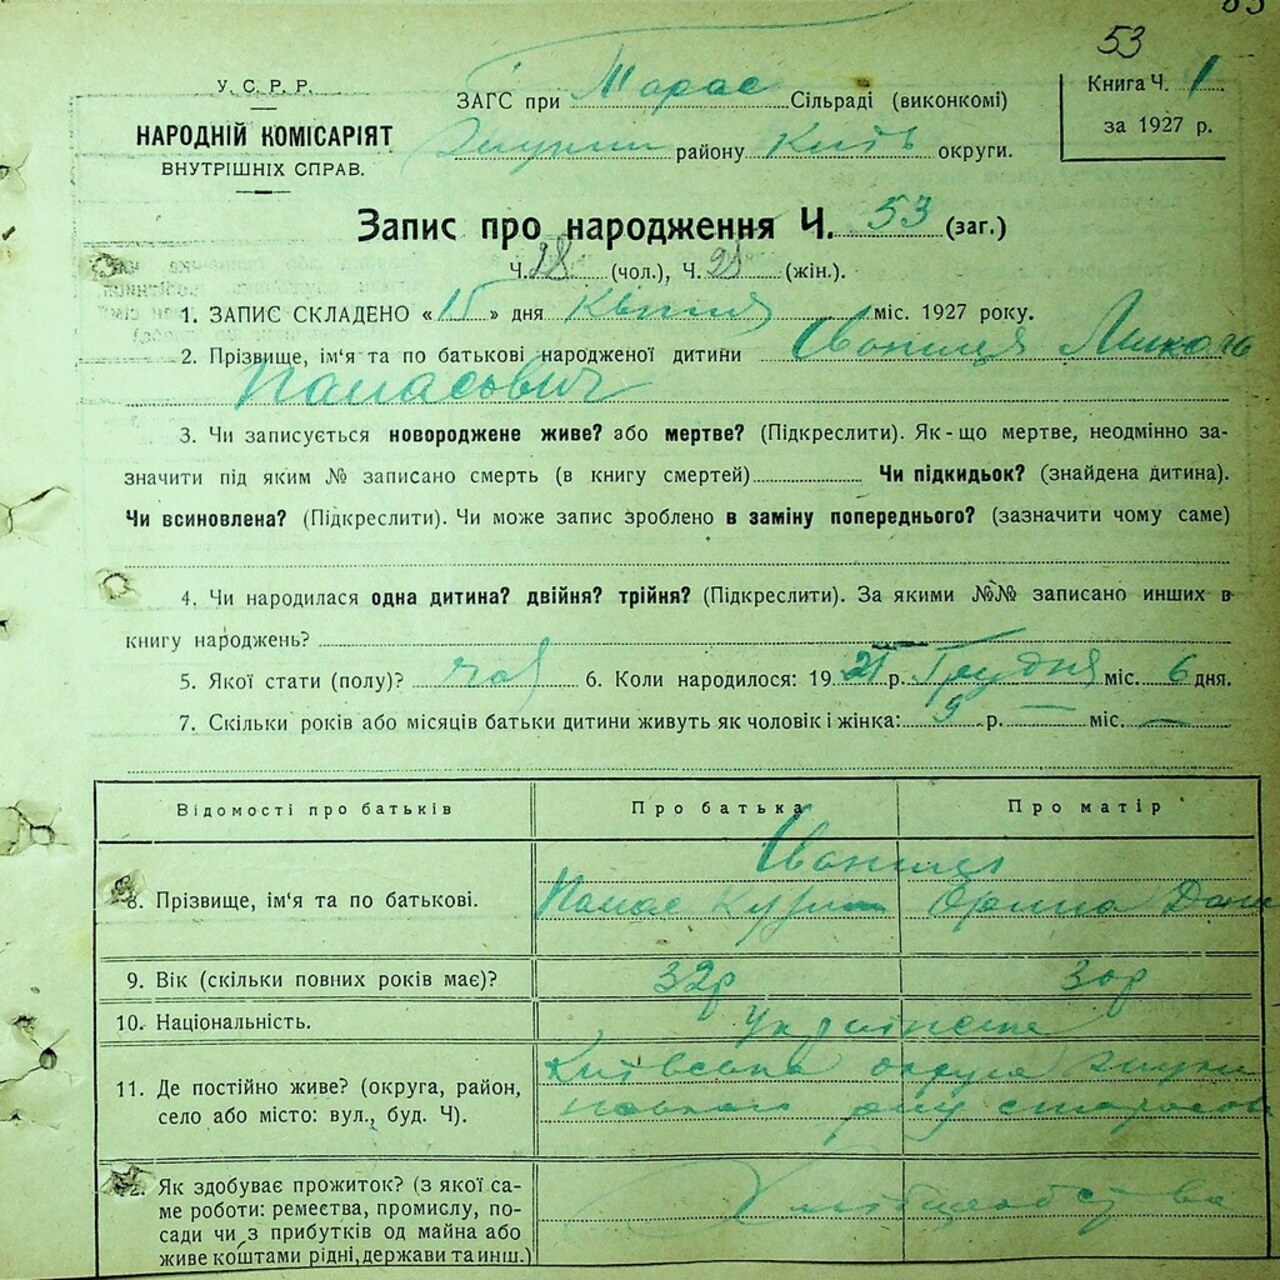 53
У. С. Р. Р.
ЗАГС при Тарас Сільраді (виконкомі)
Книга Ч. 1
НАРОДНІЙ КОМІСАРІЯТ
району Київ округи.
за 1927 р.
ВНУТРІШНІХ СПРАВ.
Запис про народження Ч. 53 (заг.)
Ч. 28 (чол.), Ч. (жін.).
1. ЗАПИС СКЛАДЕНО « 15 » дня Квітня міс. 1927 року.
2. Прізвище, ім'я та по батькові народженої дитини Микола
Панасович
3. Чи записується новороджене живе? або мертве? (Підкреслити). Як-що мертве, неодмінно за-
значити під яким № записано смерть (в книгу смертей) Чи підкидьок? (знайдена дитина).
Чи всиновлена? (Підкреслити). Чи може запис зроблено в заміну попереднього? (зазначити чому саме)
4. Чи народилася одна дитина? двійня? трійня? (Підкреслити). За якими №№ записано инших в
книгу народжень?
5. Якої стати (полу)? чол 6. Коли народилося: 19 21 р. Грудня міс. 6 дня.
7. Скільки років або місяців батьки дитини живуть як чоловік і жінка: 9 р. — міс. —
Відомості про батьків Про батька Про матір
8. Прізвище, ім'я та по батькові. Панас Орина
9. Вік (скільки повних років має)? 32р 30р
10. Національність. Українське
11. Де постійно живе? (округа, район, Київська округа
село або місто: вул., буд. Ч).
12. Як здобуває прожиток? (з якої са- Хліборобство
ме роботи: ремества, промислу, по-
сади чи з прибутків од майна або
живе коштами рідні, держави та инш.)